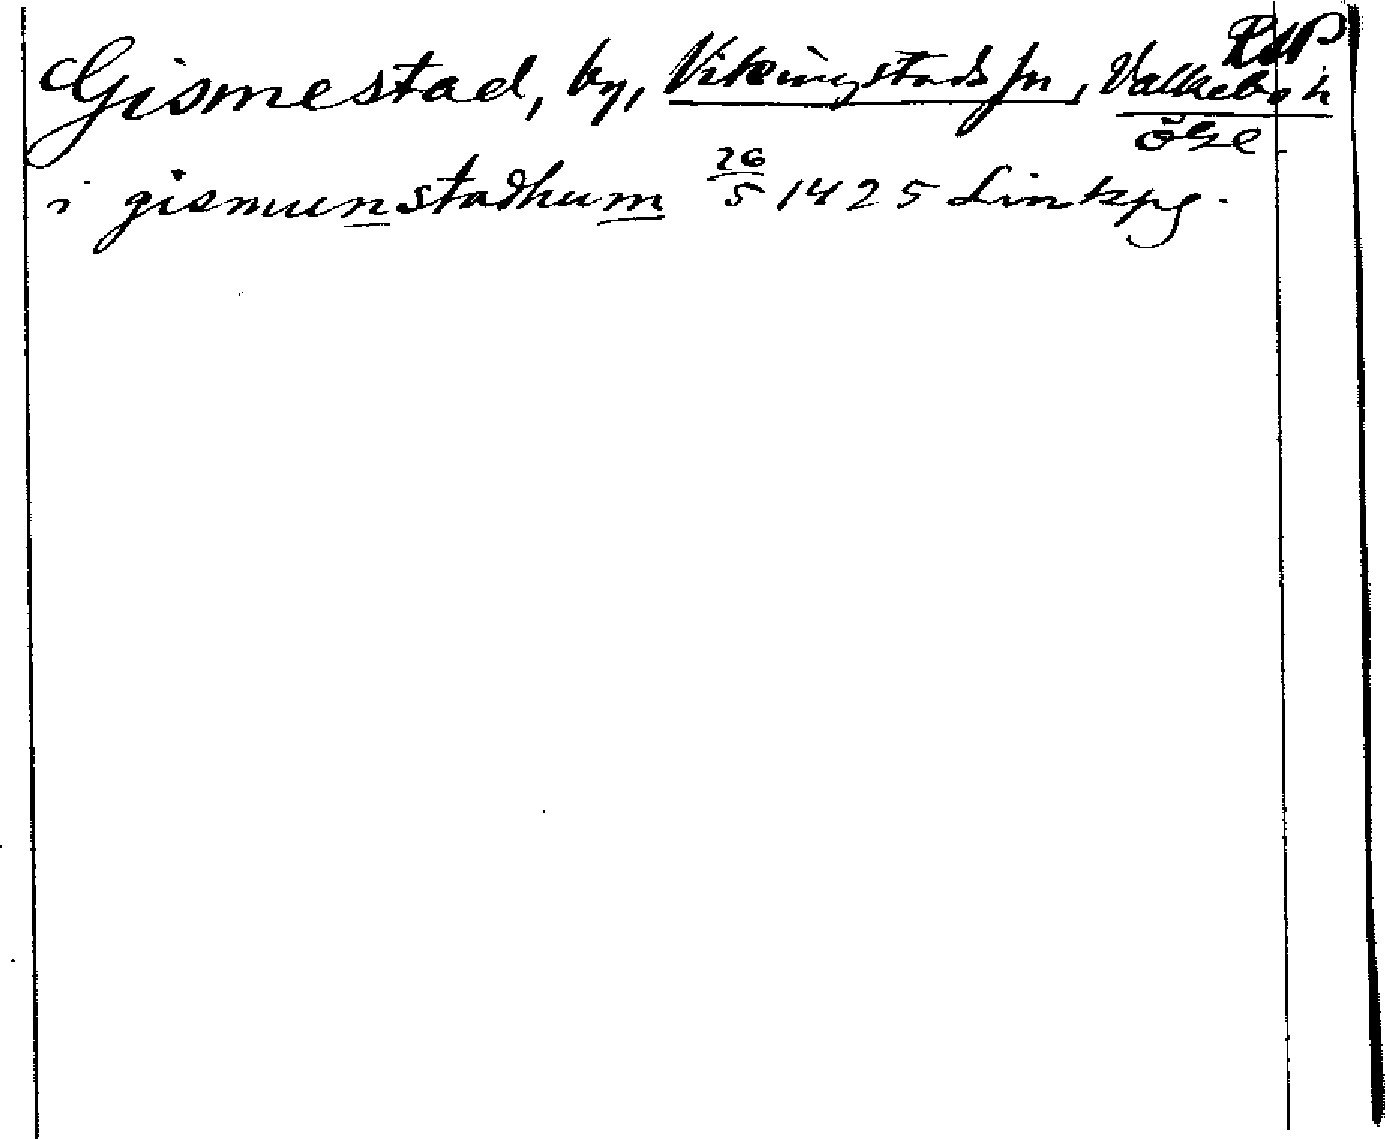 Gismestad, by, Vikingstads sn, Valkebo h
ögl
i gismunstadhum 26/5 1425 Linkpg.